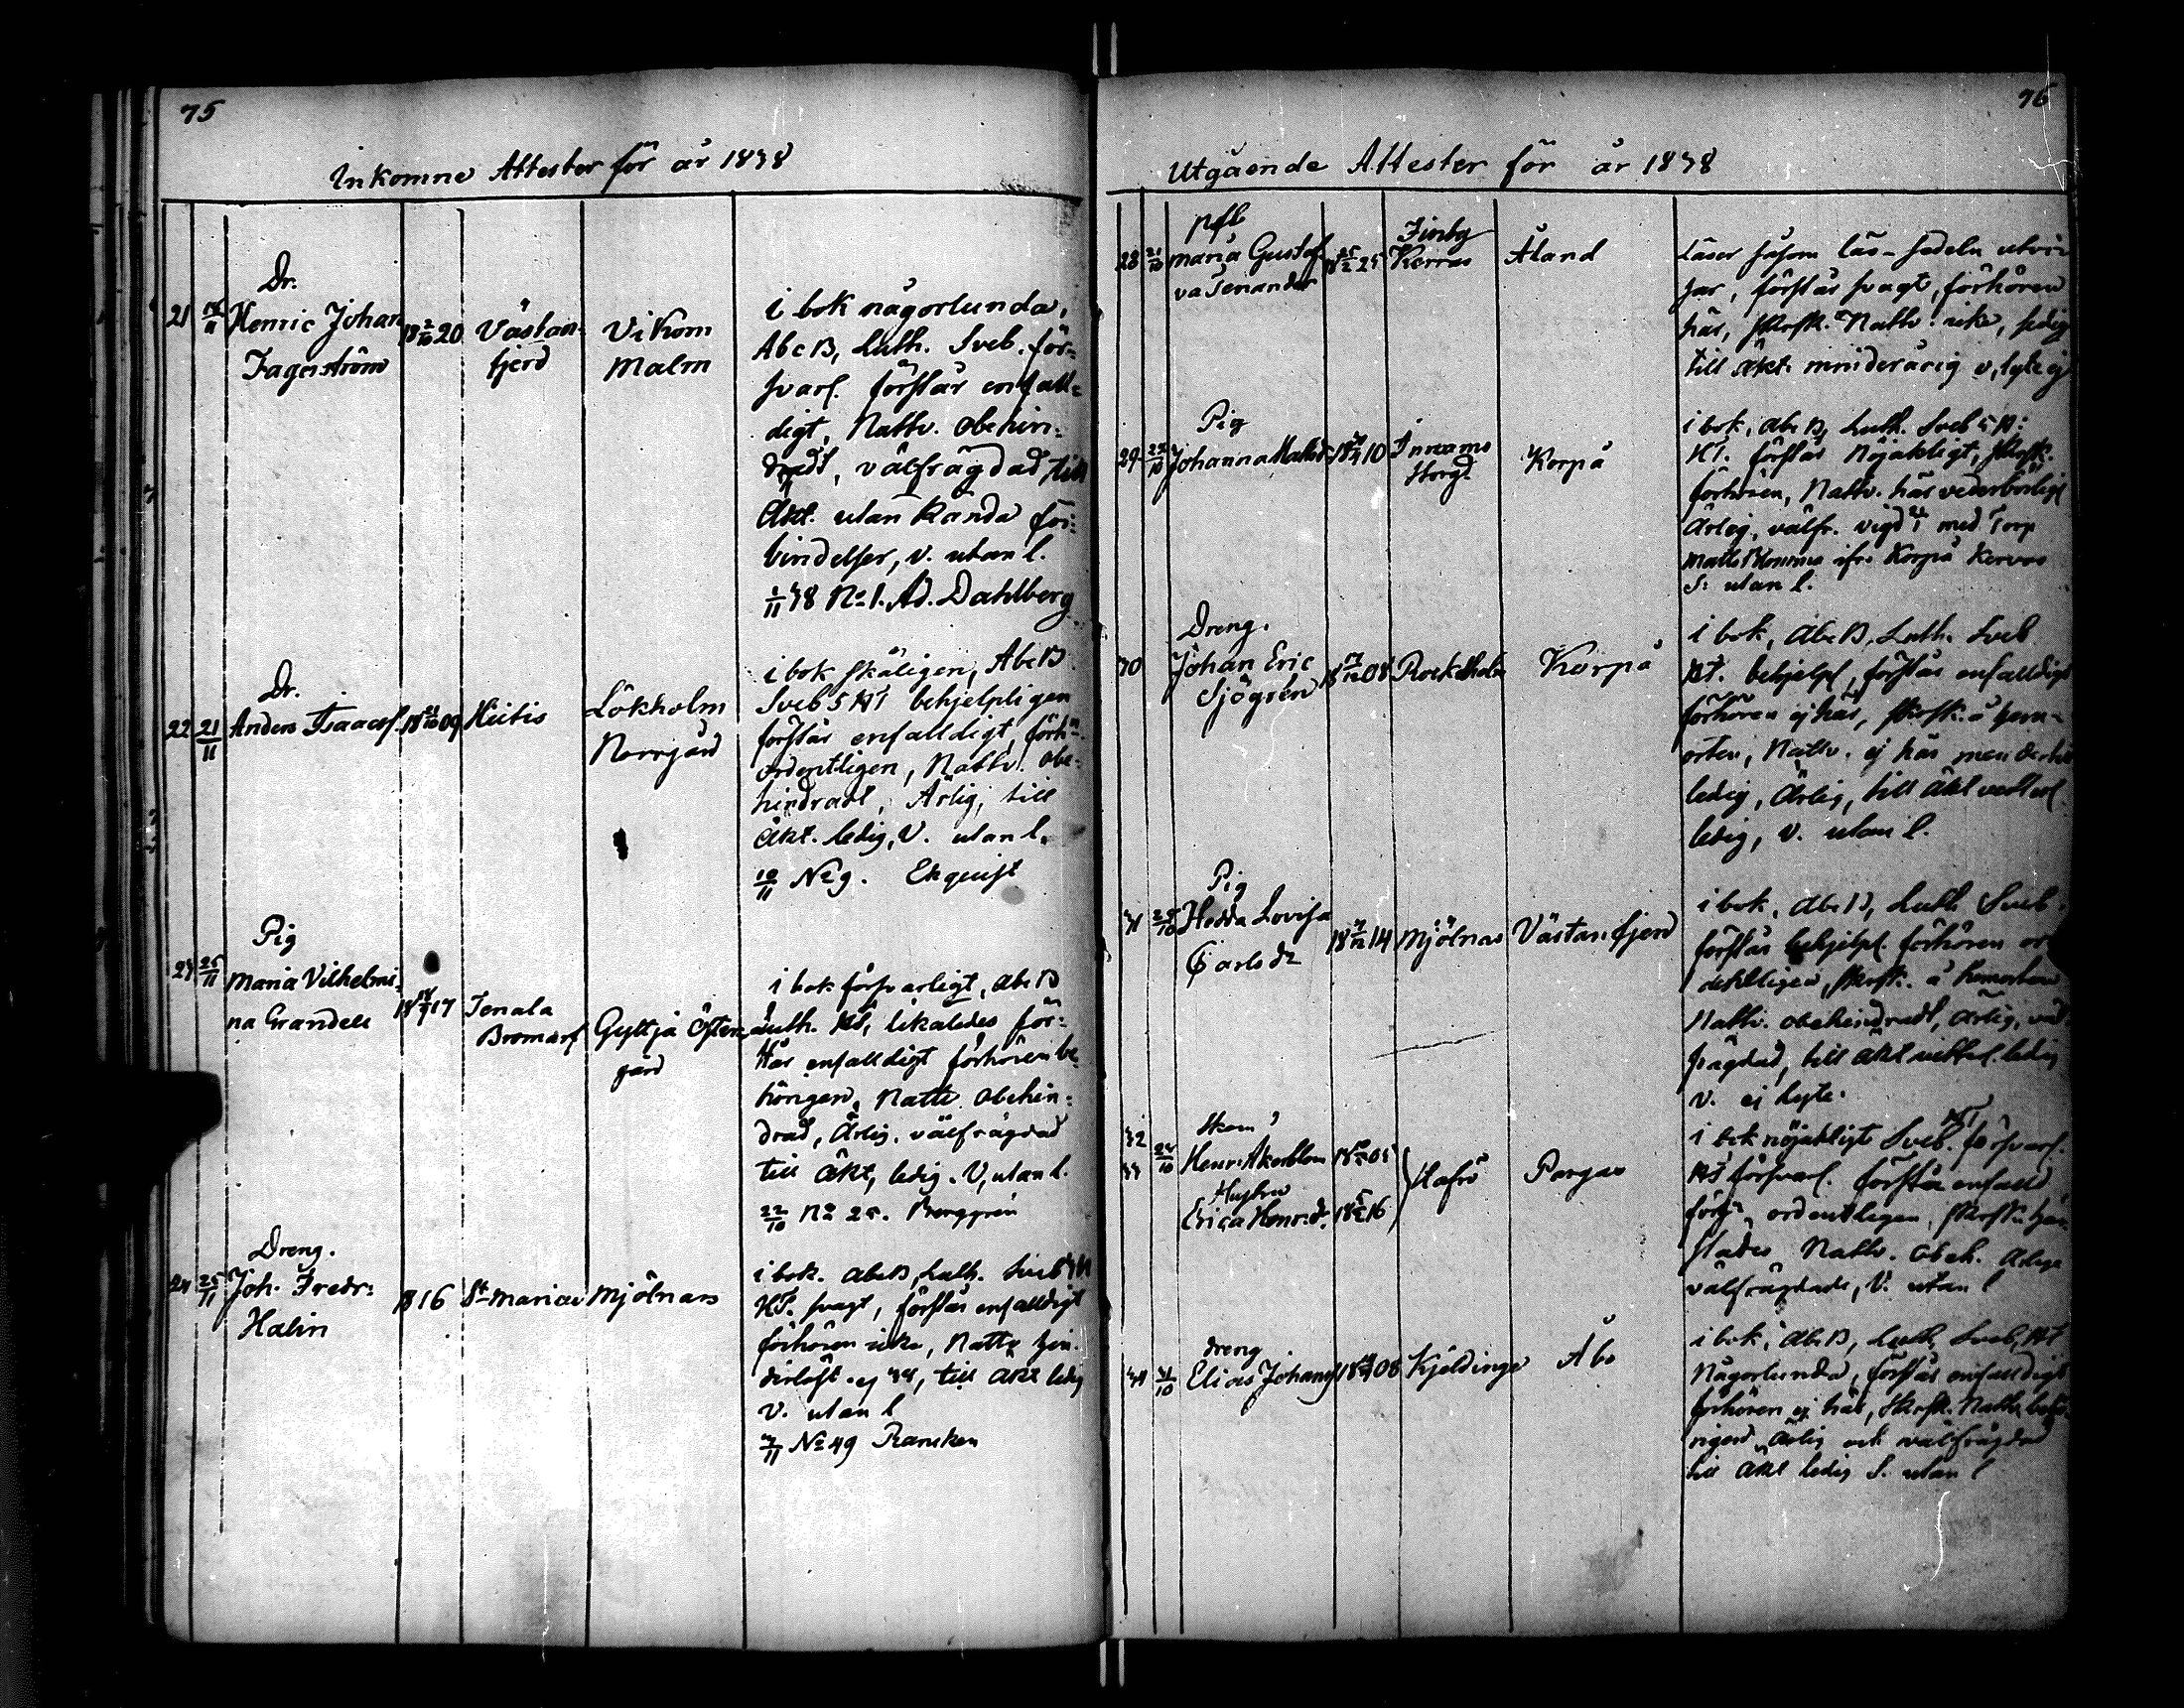 75
Inkomne Attester för år 1838
21 Dr.
Henric Johan
Fagerström
18 2/10 20
Västan-
fjerd
Vikom
Malm
i bok någorlunda,
Abc B, Luth. Sveb. för-
svarl. förstår enfall-
digt, Nattv. obehin-
dradt, välfrägdad, till
Äkt. utan kända för-
bindelser, v. utan l.
1/11 38 No 1. Ad. Dahlberg
22 21/11
Dr.
Anders Isaacss.
18 09
Hiitis
Lökholm
Norrgård
i bok skäligen, Abc B
Sveb 5 HT behjelpligen
förstår enfalldigt, förhn
ordentligen, Nattv. obe-
hindradt, Ärlig, till
Äkt. ledig, V. utan l.
10/11 No 9. Ekquist
23 25/11
Pig
Maria Vilhelmi-
na Grandell
18 17
Tenala
Bromarf
Gyttja Öster-
gård
i bok försvarligt, abc B
Luth. Ht, likaledes för-
står enfalldigt förhören be-
hörigen, Nattv. obehin-
drad, Ärlig, välfrägdad
till Äkt, ledig. V, utan l.
22/10 No 25. Berggrén
24 25/11
Dreng.
Joh. Fredr:
Halin
816
St Mariæ
Mjölnars
i bok. abc B, Luth. Sveb 3 H
HT. svagt, förstår enfalldigt
förhören icke, Nattv hin-
derlöst till äkt ledig
V. utan l
3/11 No 49 Rancken
76
Utgående Attester för år 1838
28 21/10
pfl
Maria Gustaf-
va Tenander
18 5/2 25
Finby
Kerras
Åland
Läser såsom läs-sedeln utvi-
sar, förstår svagt, förhören
här, Skrft. Nattv. icke, ledig
till äkt. minderårig v, lyte ej
29 22/10
Pig
Johanna Mattsdr
18 10
Innamo
Storgd
Korpå
i bok, abc B, Luth. Sveb 5 H:
HT. förstår Nöjaktligt, Skrft.
förhören, Nattv. här vederbörligt
Ärlig, välfr. vigd med Torp
Matts ifr. Korpå
S: utan l.
30
Dreng.
Johan Eric
Sjögrén
18 08
Rockholm
Korpå
i bok, Abc B, Luth. Sveb
HT. behjelpl, förstår enfalldigt
förhören ej här, Skrft. å hem-
orten, Nattv. ej här men
ledig, Ärlig, till Äkt vetterl.
ledig, v. utan l.
31 25/10
Pig
Hedda Lovisa
Carlsdr
18 14
Mjölnars
Västanfjerd
i bok, Abc B, Luth Sveb,
förstår behjelpl. förhören or-
dentligen, Skrft. å hemorten
Nattv. obehindradt, Ärlig, väl-
frägdad, till äkt vetterl. ledig
v. ej lyte.
32
33
27/10
Henr. Åkerblom
18 05
Hustru
Erica Henrsdr.
18 16
Hafrö
Pargas
i bok nöjaktligt Sveb. HT försvarl.
HT försvarl. förstå enfalld
förhn ordentligen, Skrft
Nattv. obeh. ärlige
välfrägdade, V. utan l
34 31/10
dreng
Elias Johanss
18 08
Kjeldinge
Åbo
i bok, Abc B, Luth, Sveb, HT
Någorlunda, förstår enfalldigt
förhören ej här, Skrft. Nattv behö-
rigen Ärlig och välfrägdad
till Äkt ledig S. utan l